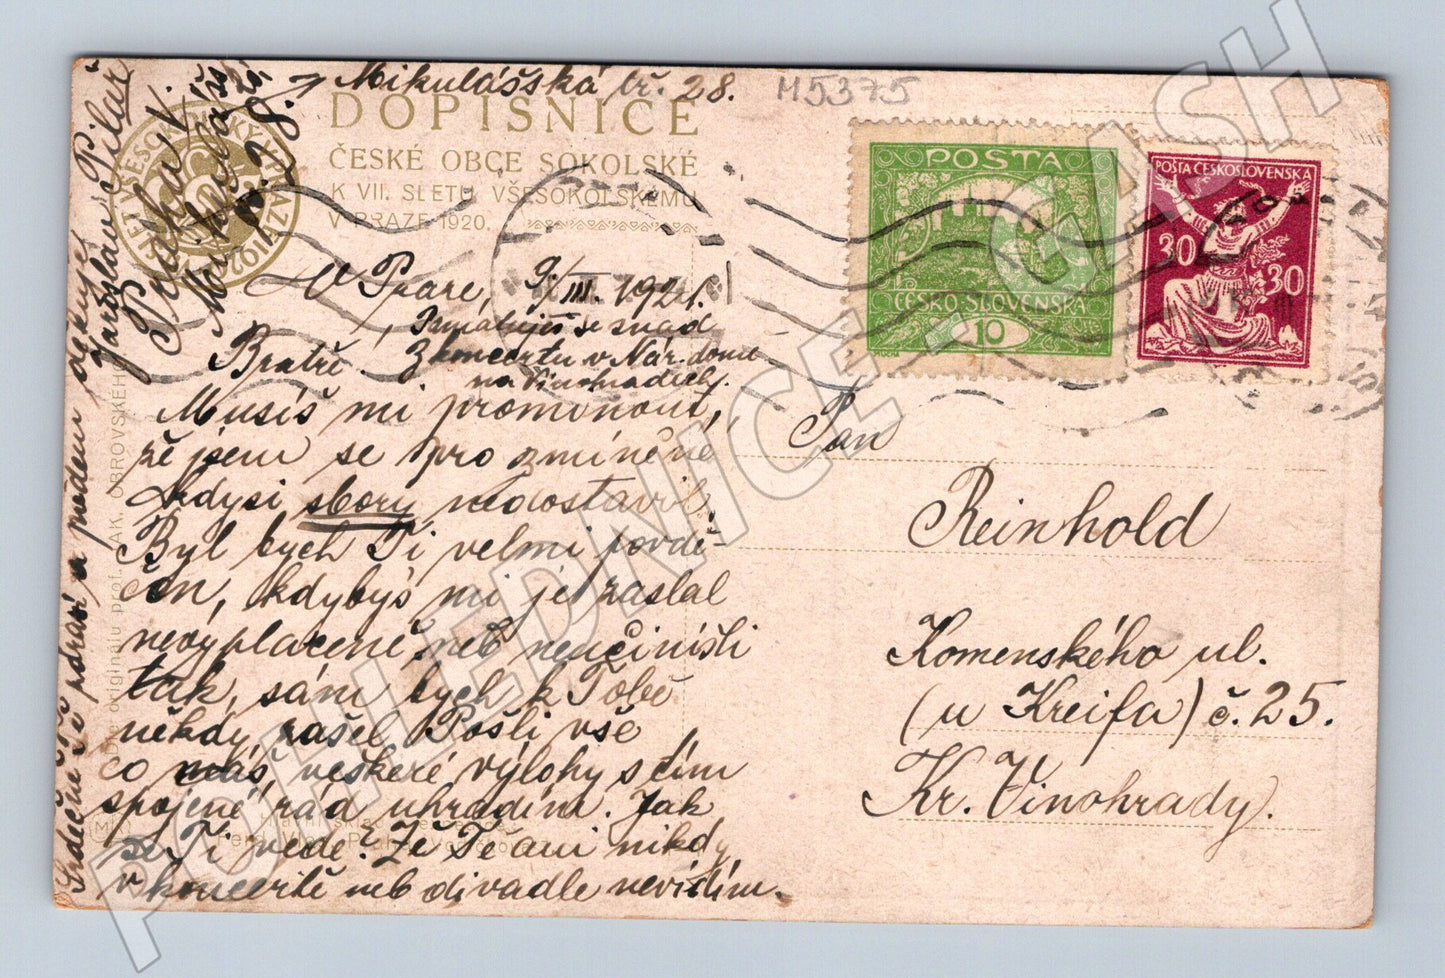 Mikulášská tř. 28.
M5375
DOPISNICE
ČESKÉ OBCE SOKOLSKÉ
K VII. SLETU VŠESOKOLSKÉMU
V PRAZE 1920.
POSTA
ČESKO-SLOVENSKÁ
10
POŠTA ČESKOSLOVENSKÁ
30 30
V Praze, 9/III. 1921.
Pamatuješ se snad
Bratře. Z koncertu v Nár. domu
na Vinohradech.
Musíš mi prominout,
že jsem se pro zmíněné
kdysi sbory nedostavil.
Byl bych Ti velmi povdě-
čen, kdybys mi je zaslal
nevyplaceně, neb neučiníš li
tak, sám bych k Tobě
někdy zašel. Pošli vše
co máš, veškeré výlohy s tím
spojené, rád uhradím. Jak
se Ti vede? Že Tě ani nikdy
v koncertě neb divadle nevidím.
Srdečně Tě zdraví a předem děkuje
Jaroslav Pilař
Praha V.
Mikulášská
tř. 28.
Pan
Reinhold
Komenského ul.
(u Kreifa) č. 25.
Kr. Vinohrady.
Dle originálu prof. JAK. OBROVSKÉHO
POHLEDNICE-CASH